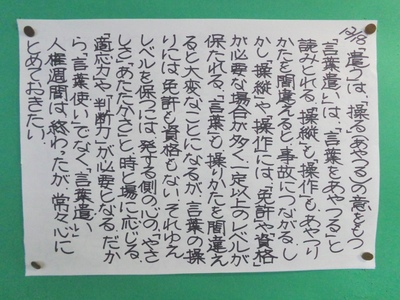 12/13
「遣う」は、「操る(あやつる)」の意をもつ
「言葉遣い」は、「言葉をあやつる」と
読みとれる。「操縦」も「操作」も、あやつり
かたを間違えると事故につながる。し
かし「操縦」や「操作」には、「免許や資格」
が必要な場合が多く、一定以上のレベルが
保たれる。「言葉」も操りかたを間違え
ると大変なことになるが、言葉の操
りには、免許も資格もない。それゆえ
レベルを保つには、発する側の心の、「やさ
しさ」「あたたかさ」と、時と場に応じる
「適応力」や「判断力」が必要となる。だか
ら、「言葉使い」でなく「言葉遣い」
人権週間は、終わったが、常々心に
とめておきたい。